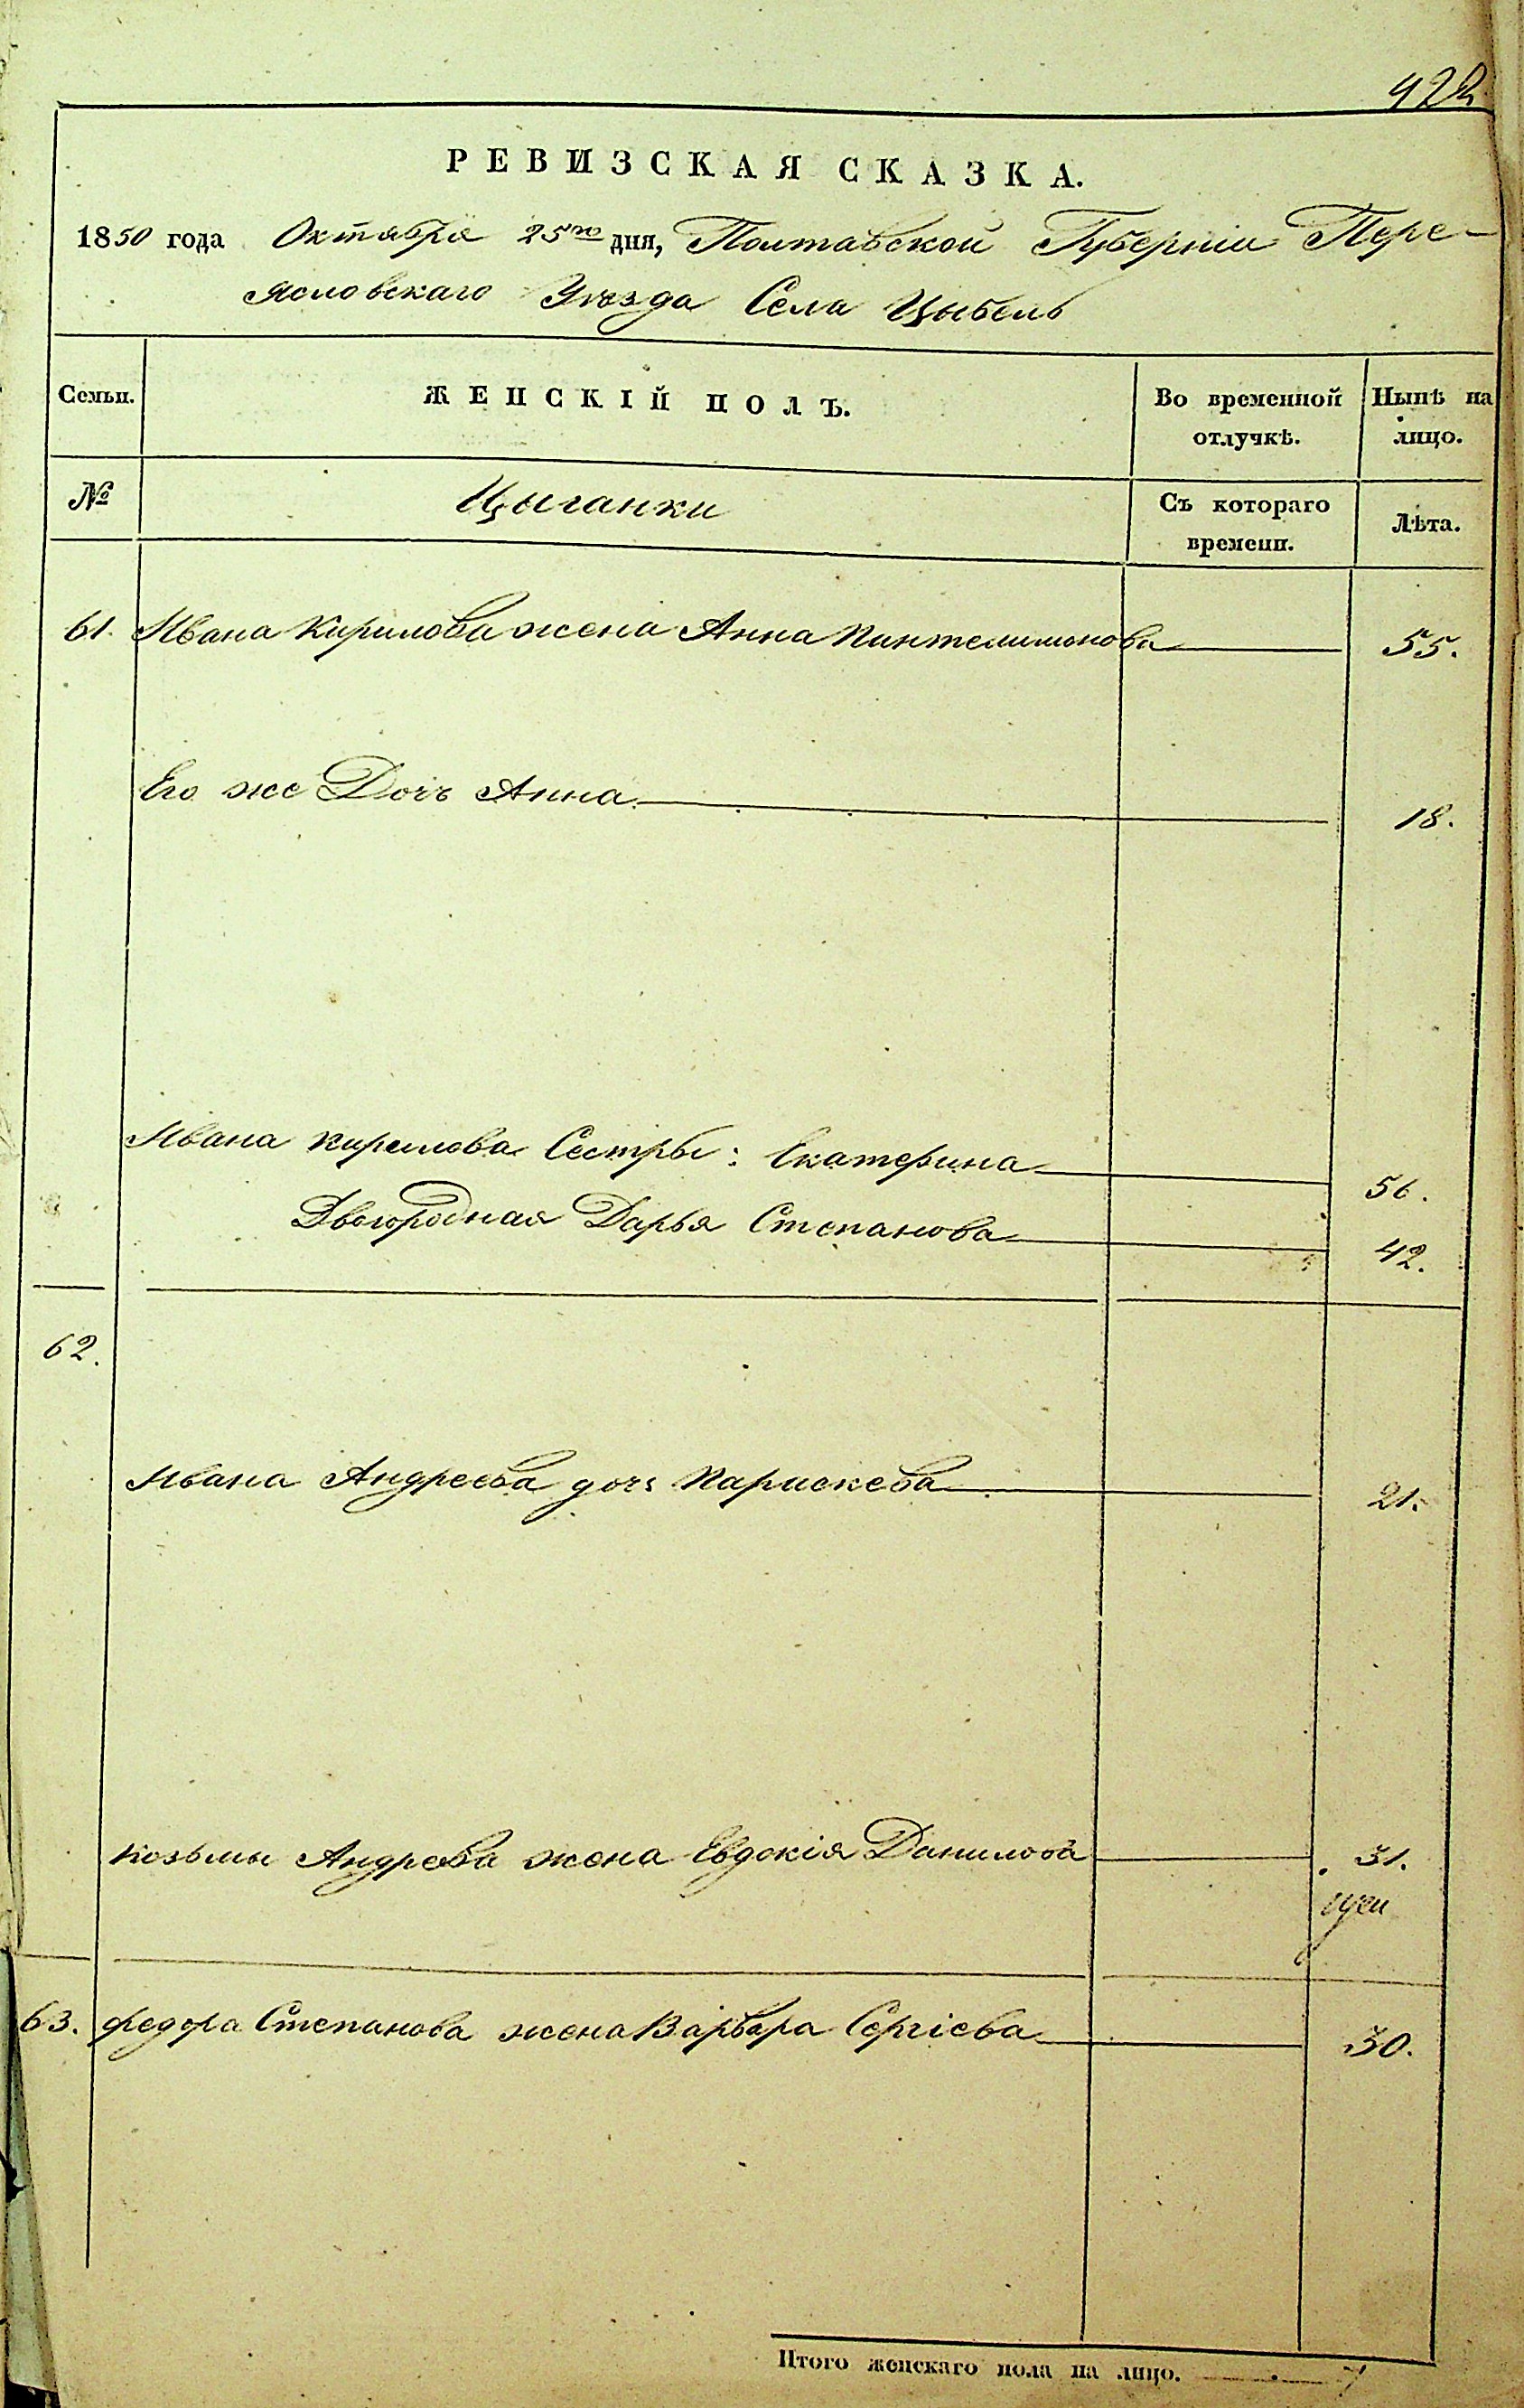 922
РЕВИЗСКАЯ СКАЗКА.
1850 года Октября 25го дня, Полтавской Губерніи Пере-
яславскаго Уѣзда Села Цыбель
Семьи. ЖЕНСКІЙ ПОЛЪ. Во временной отлучкѣ. Нынѣ на лицо.
№ Цыганки Съ котораго времени. Лѣта.
61. Ивана Кирилова жена Анна Пантелимонова 55.
Его же Дочь Анна 18.
Ивана Кирилова Сестры: Екатерина 56.
Двогородная Дарья Степанова 42.
62.
Ивана Андреева дочь Параскева 21.
Козьмы Андреева жена Евдокія Данилова 31.
63. Федора Степанова жена Варвара Сергіева 30.
Итого женскаго пола на лицо. 7